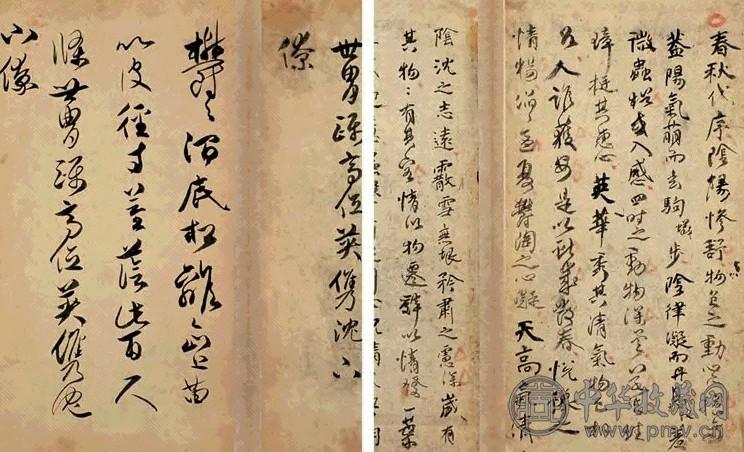 春秋代序陰陽慘舒物色之動心
蓋陽氣萌而玄駒步陰律凝而丹鳥羞
微蟲猶或入感四時之動物深矣若夫珪
璋挺其惠心英華秀其清氣物色相
召人誰獲安是以獻歲發春悅豫之
情暢滔滔孟夏鬱陶之心凝天高氣清
陰沈之志遠霰雪無垠矜肅之慮深歲有
其物〻有其容情以物遷辭以情發一葉
世冑躡高位英雋沈下
僚
鬱〻澗底松離〻山上苗
以彼徑寸莖蔭此百尺
條世冑躡高位英雋沈
下僚
中华收藏网
www.pmv.cn